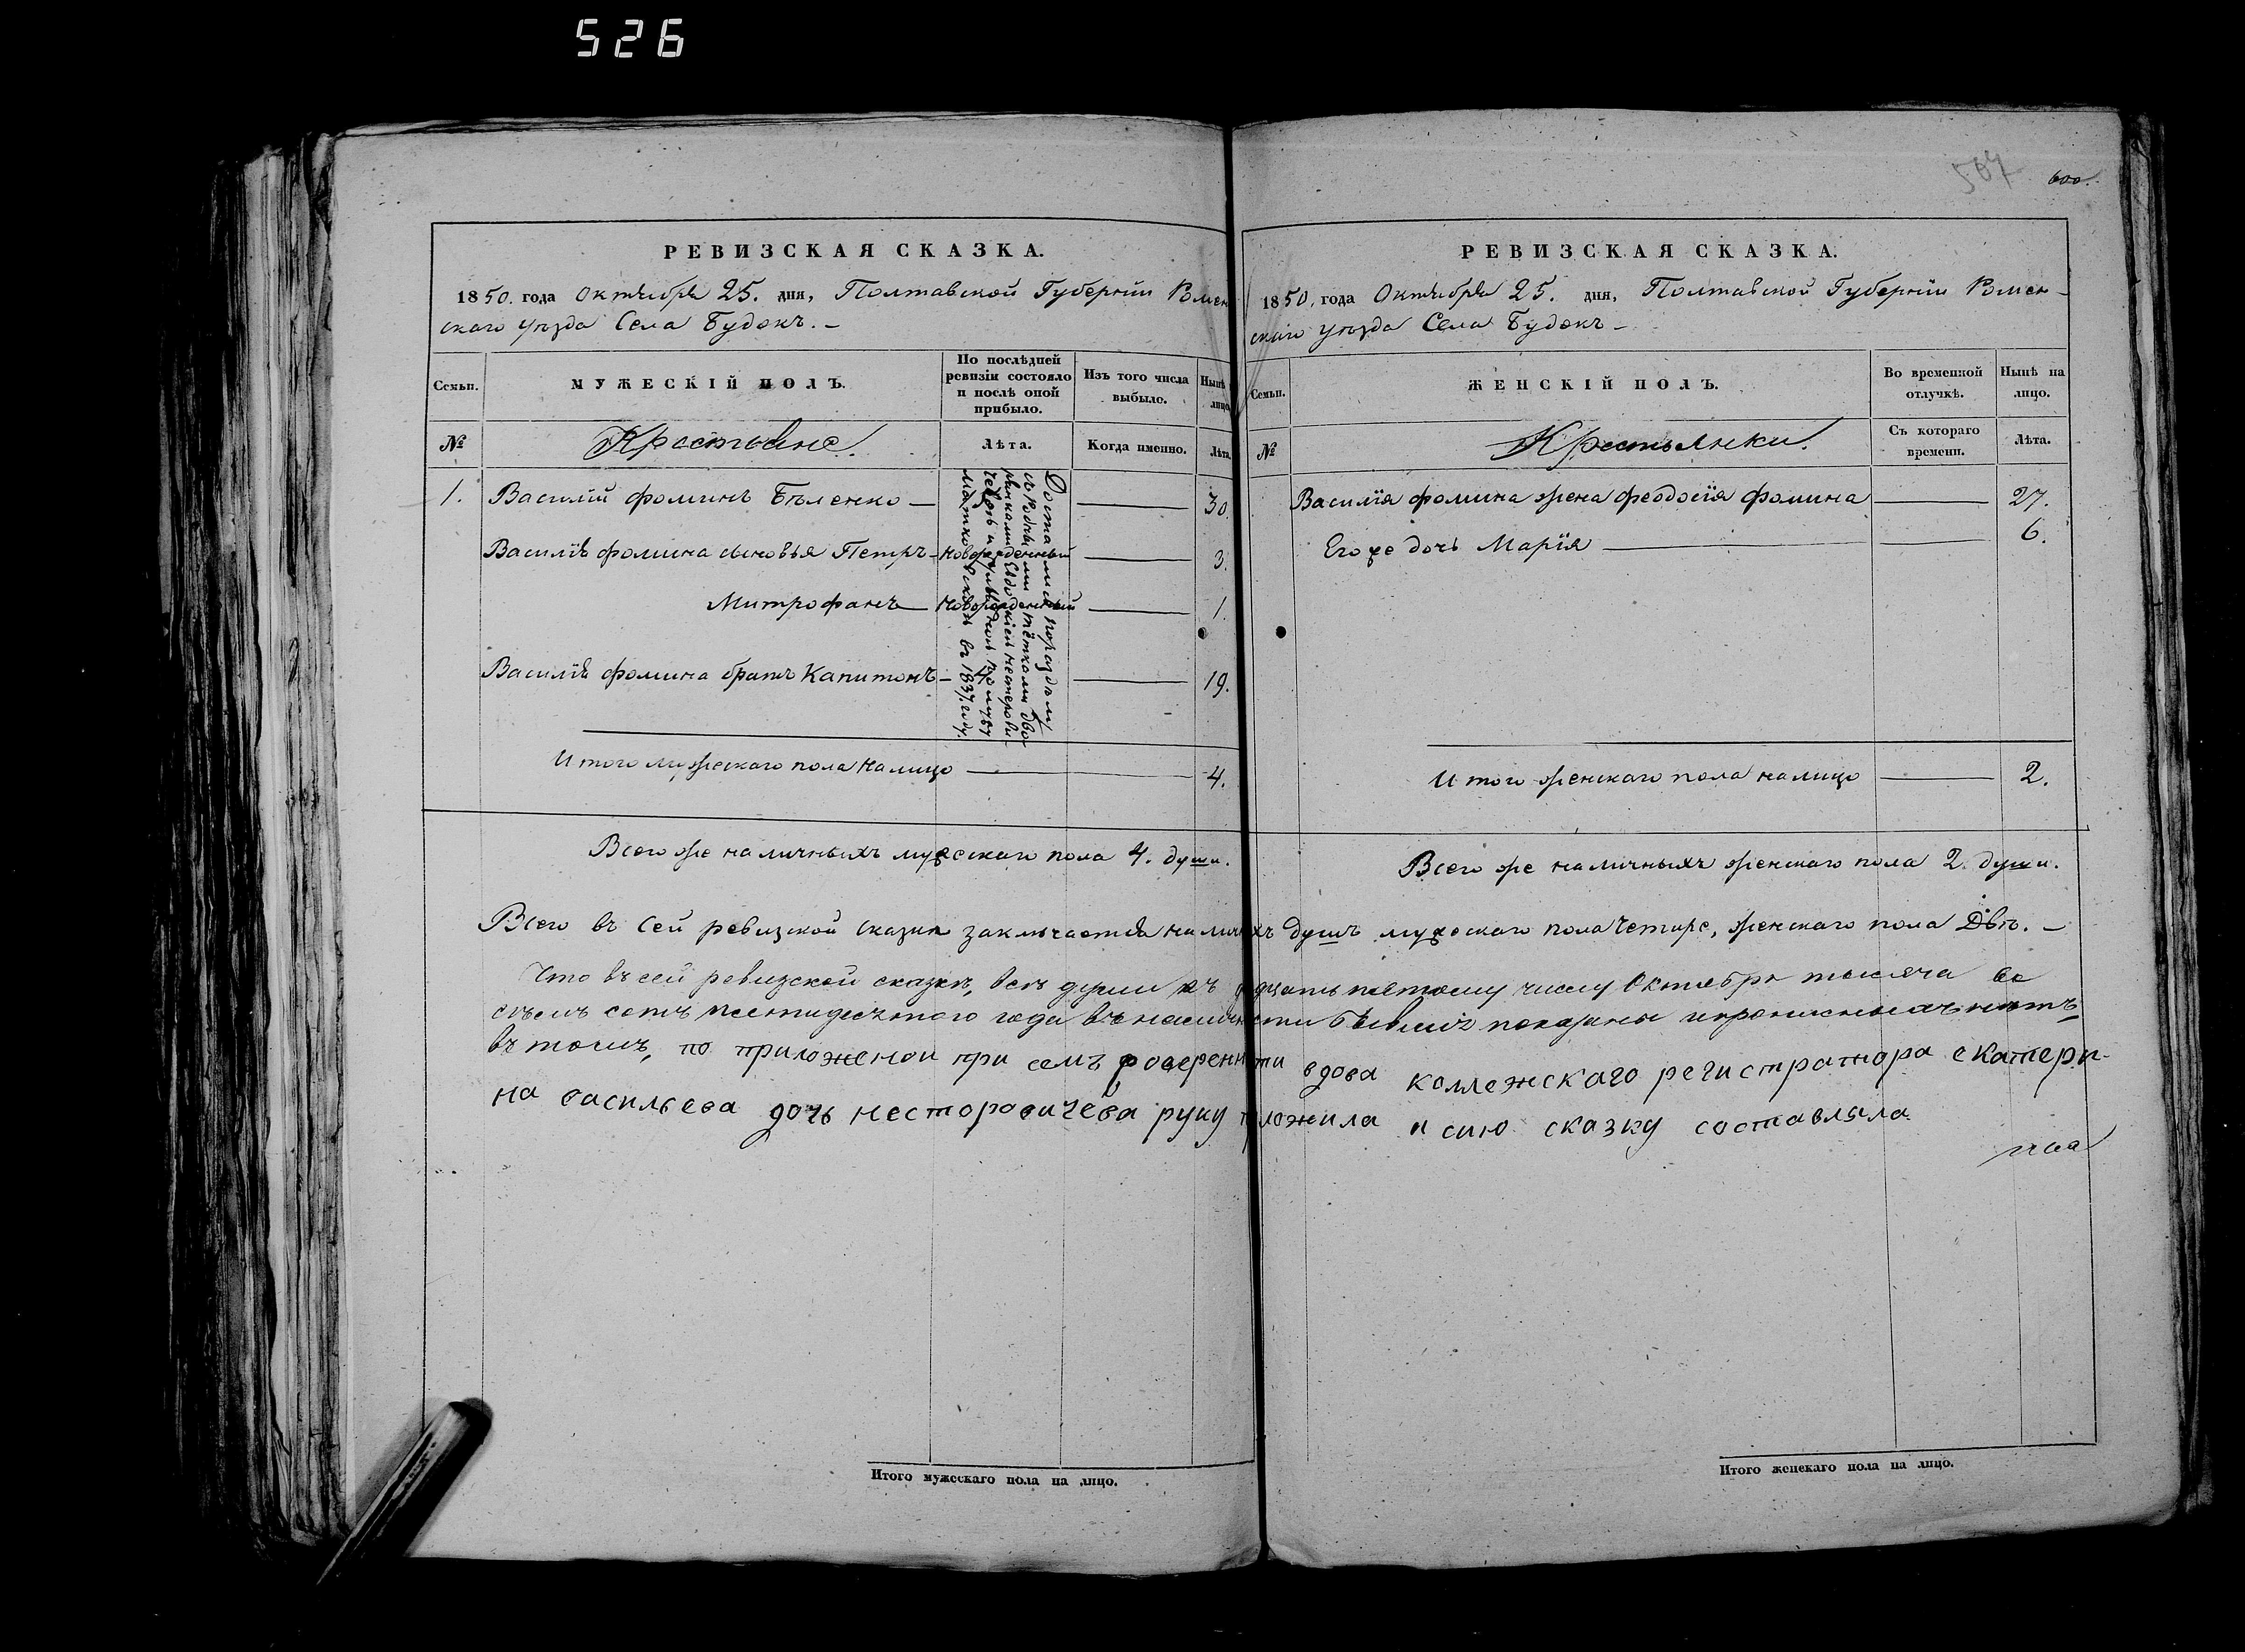 526
567 600.
РЕВИЗСКАЯ СКАЗКА.
1850. года Октября 25. дня, Полтавской Губернїи Ромен
скаго уѣзда Села Будокъ. –
Семьи. МУЖЕСКІЙ ПОЛЪ. По послѣдней ревизіи состояло и послѣ оной прибыло. Изъ того числа выбыло. Нынѣ лицо.
№ Крестьяне. Лѣта. Когда именно. Лѣта.
1. Василій Фоминъ Бѣленко — 30.
Василїя Фомина сыновья Петръ – новорожденный 3.
Митрофанъ — новорожденный 1.
Василїя Фомина братъ Капитонъ – 19.
Достались по раздѣлу
съ родными тётками дво-
рянками Евдокіею Нестерови-
чевою и
въ 1837. году.
Итого мужескаго пола на лицо — 4.
Всего же наличныхъ мужескаго пола 4. души.
РЕВИЗСКАЯ СКАЗКА.
1850, года Октября 25. дня, Полтавской Губернїи Ромен–
скаго уѣзда Села Будокъ –
Семьи. ЖЕНСКІЙ ПОЛЪ. Во временной отлучкѣ. Нынѣ на лицо.
№ Крестьянки. Съ котораго времени. Лѣта.
Василїя Фомина жена Феодосїя Фомина — 27.
Его же дочь Марїя — 6.
Итого женскаго пола на лицо — 2.
Всего же наличныхъ женскаго пола 2. души.
Всего въ сей ревизской сказкѣ заключается налич хъ душъ мужескаго пола четыре, женскаго пола Двѣ. –
Что въ сей ревизской сказкѣ, всѣ души къ дцать пятому числу Октября тысяча во
сѣмъ сотъ пятидесятого года въ наличности бывшіе показаны и прописныхъ нѣтъ
въ томъ, по приложеной при семъ доверенности вдова коллежскаго регистратора екатери-
на васильева дочь несторовичева руку приложила и сию сказку составляла
Итого мужескаго пола на лицо.
Итого женскаго пола на лицо.